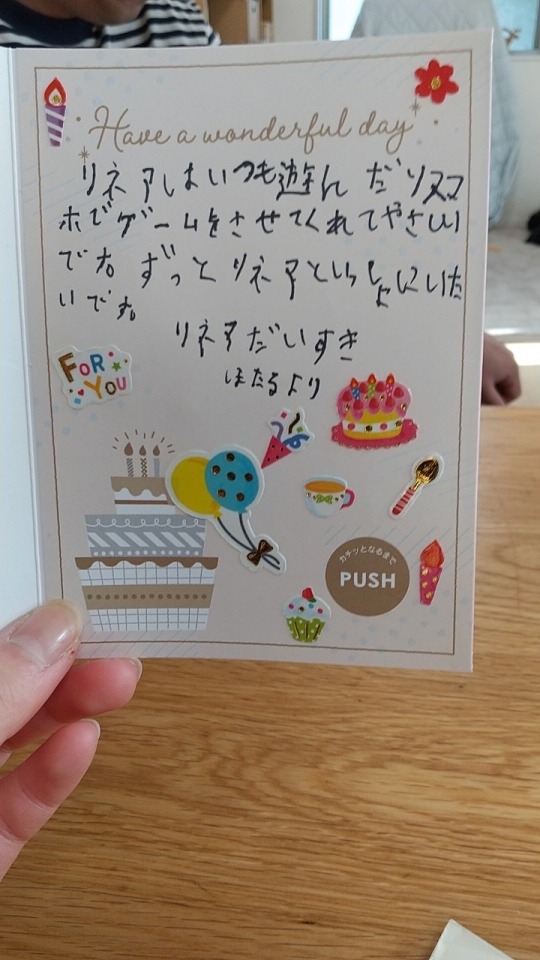 Have a wonderful day
リネアしはいつも遊んだりスマ
ホでゲームをさせてくれてやさしい
です ずっとリネアといっしょにいた
いです。
リネアだいすき
ほたるより
FOR
YOU
カチッとなるまで
PUSH